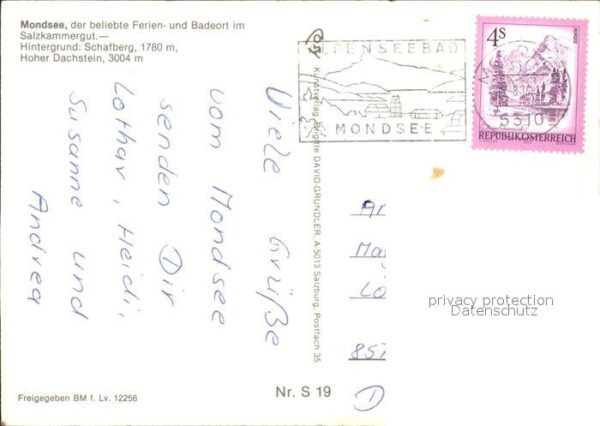 Mondsee, der beliebte Ferien- und Badeort im
Salzkammergut.—
Hintergrund: Schafberg, 1780 m,
Hoher Dachstein, 3004 m
Viele Grüße
vom Mondsee
senden Dir
Lothar, Heidi,
Susanne und
Andrea
Freigegeben BM f. Lv. 12256
Nr. S 19
Kunstverlag Brigitte DAVID-GRUNDLER, A-5013 Salzburg, Postfach 35
ALPENSEEBAD
MONDSEE
5310
4S
ALMSEE
REPUBLIK ÖSTERREICH
Ar
Ma
Lö
857
D
privacy protection
Datenschutz